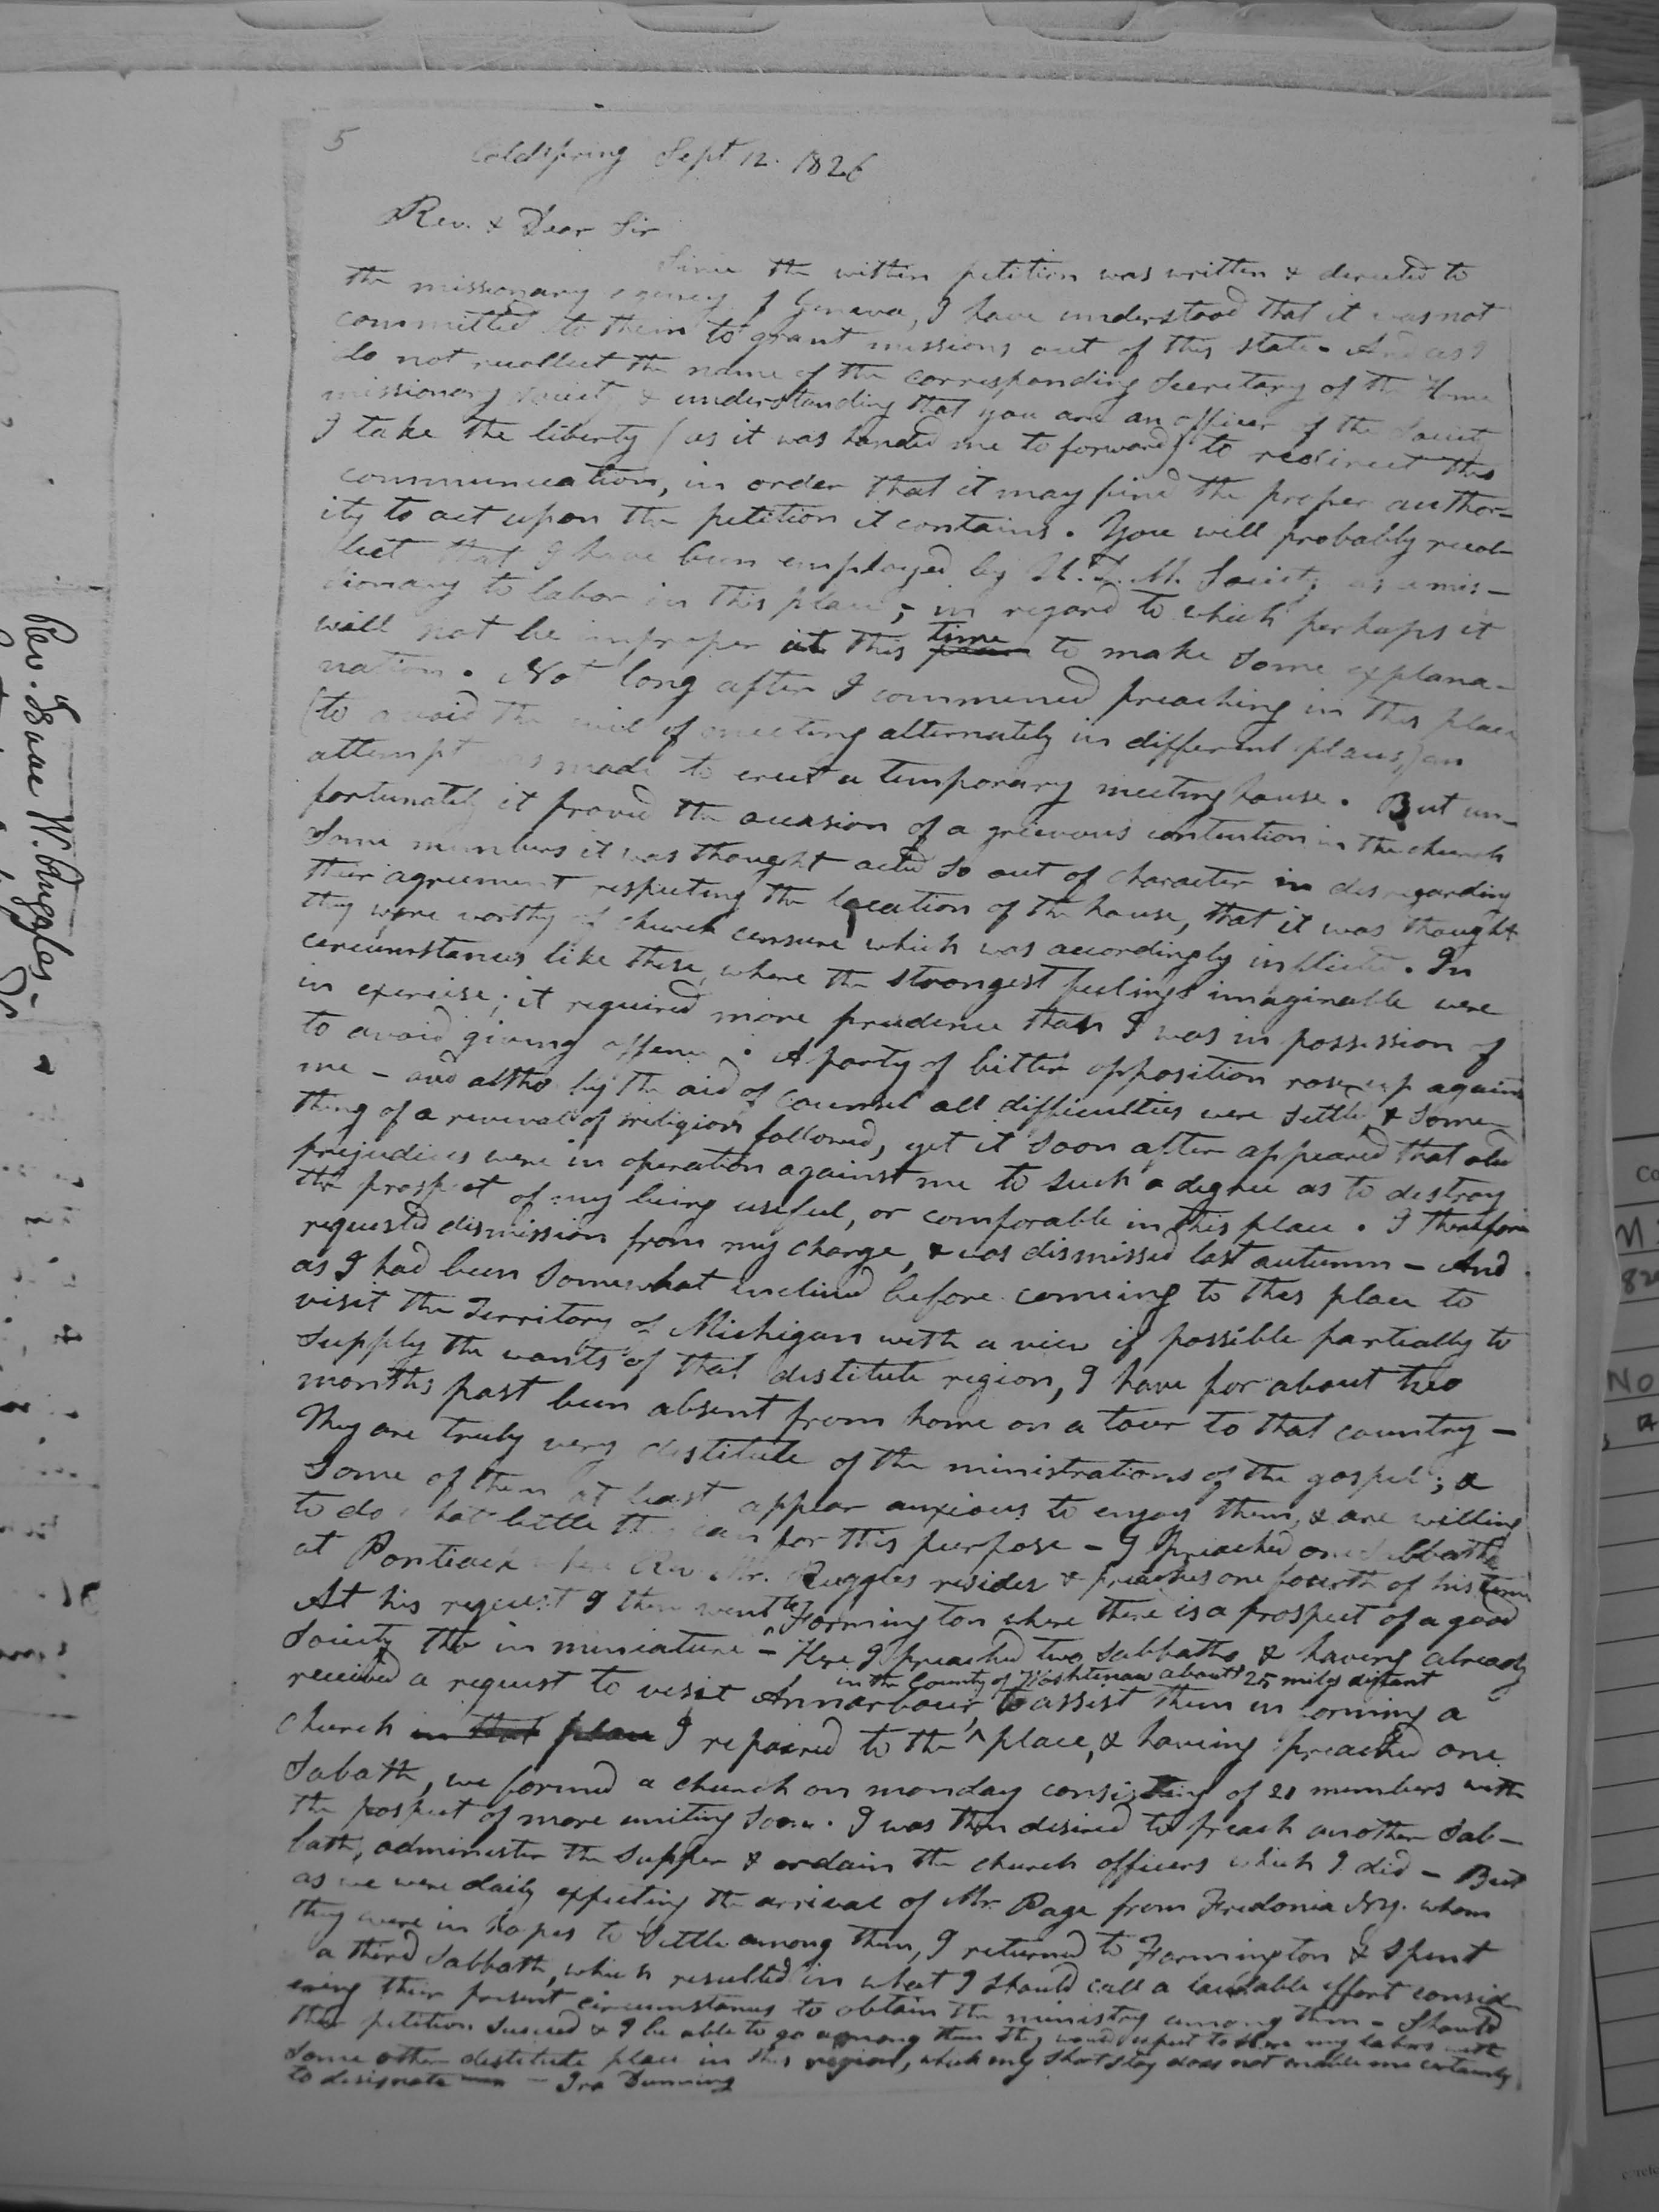 5
Coldspring Sept 12. 1826
Rev. & Dear Sir
Since the within petition was written & directed to
the missionary agency of Geneva, I have understood that it was not
committed to them to grant missions out of this state - And as I
do not recollect the name of the corresponding Secretary of the Home
missionary Society & understanding that you are an officer of the Society
I take the liberty (as it was handed me to forward) to redirect this
communication, in order that it may find the proper author=
ity to act upon the petition it contains. You will probably recol-
lect that I have been employed by U. D. M. Society as a mis-
sionary to labor in this place; in regard to which perhaps it
will not be improper at this time to make some explana-
nation. Not long after I commenced preaching in this place
(to avoid the evil of meeting alternately in different places,) an
attempt was made to erect a temporary meeting house. But un-
fortunately it proved the occasion of a grievous contention in the church
Some members it was thought acted so out of character in disregarding
their agreement respecting the location of the house, that it was thought
they were worthy of church censure which was accordingly inflicted. In
circumstances like these, where the strongest feelings imaginable were
in exercise; it required more prudence than I was in possession of
to avoid giving offence. A party of bitter opposition rose up against
me - and altho by the aid of Counsel all difficulties were settled & some-
thing of a revival of religion followed, yet it soon after appeared that old
prejudices were in operation against me to such a degree as to destroy
the prospect of my being useful, or comforable in this place. I therefore
requested dismission from my charge, & was dismissed last autumn - And
as I had been somewhat inclined before coming to this place to
visit the Territory of Michigan with a view if possible partially to
supply the wants of that destitute region, I have for about two
months past been absent from home on a tour to that country -
They are truly very destitute of the ministrations of the gospel; &
some of them at least appear anxious to enjoy them, & are willing
to do what little they can for this purpose - I preached one Sabbath
at Pontiack where Rev. Mr. Ruggles resides & preaches one fourth of his time
At his request I then went to Farmington where there is a prospect of a good
Society tho in miniature - Here I preached two Sabbaths & having already
in the County of Washtenaw about 25 miles distant
received a request to visit Annarbour, to assist them in forming a
church in that place I repaired to the ^ place, & having preached one
Sabath, we formed a church on monday consisting of 21 members with
the prospect of more uniting soon. I was then desired to preach another Sab-
bath, administer the supper & ordain the church officers which I did - But
as we were daily expecting the arrival of Mr. Page from Fredonia N.Y. whom
they were in hopes to settle among them, I returned to Farmington & spent
a third Sabbath, which resulted in what I should call a laudable effort consid-
ering their present circumstances to obtain the ministry among them - Should
their petition succeed & I be able to go among them they would expect to share my labors with
some other destitute place in this region, which my short stay does not enable me certainly
to designate - Ira Dunning
Rev. Isaac W. Ruggles -